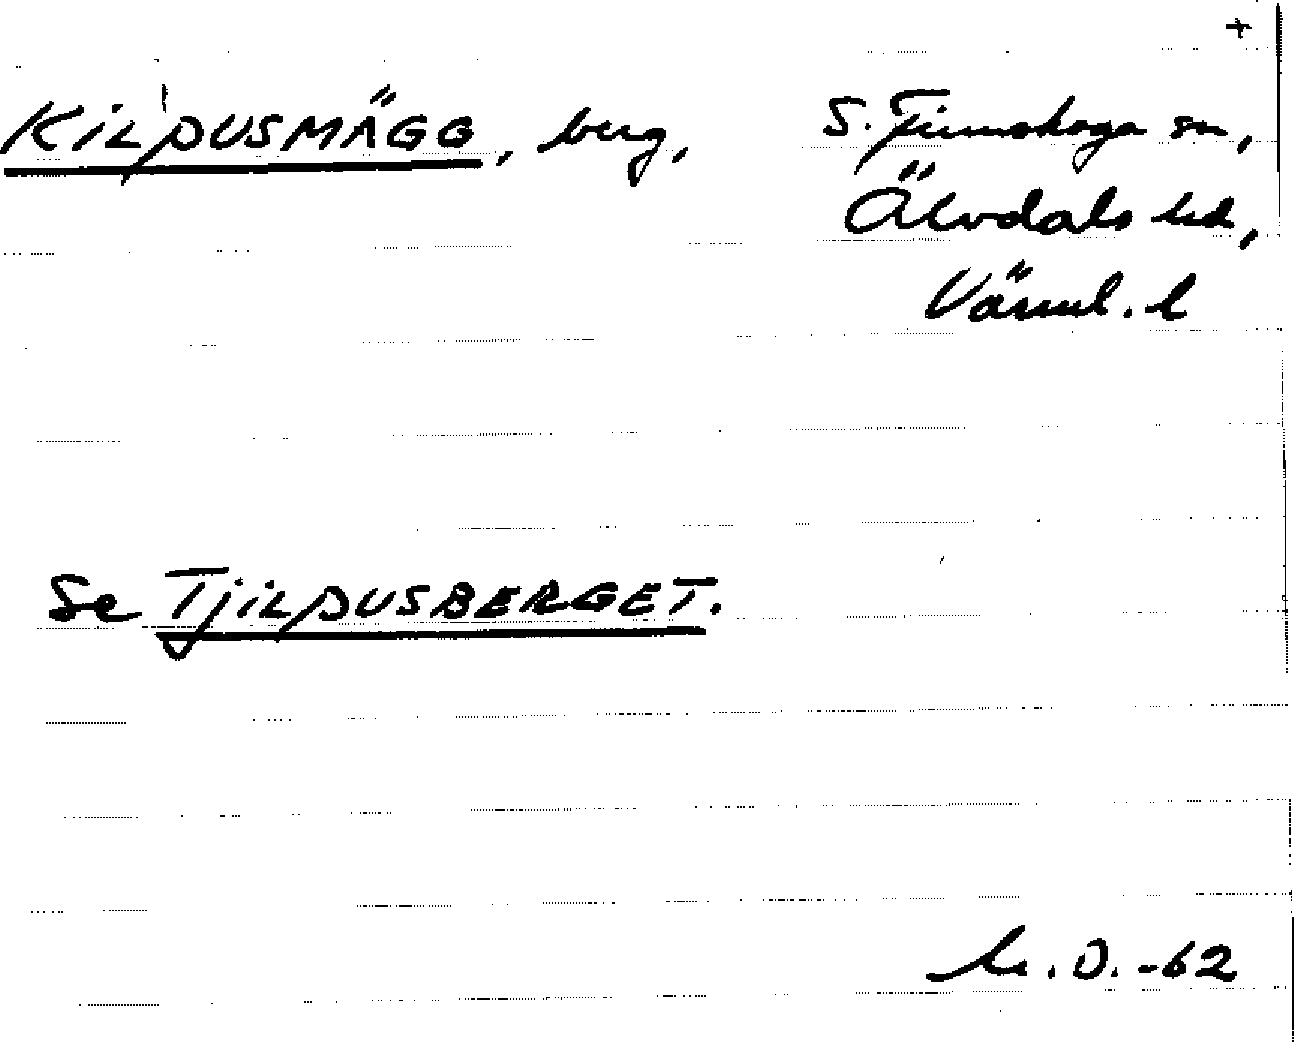 +
KILPUSMÄGG, berg, S. Finnskoga sn,
Älvdals hd,
Värml. l
Se TJILPUSBERGET.
-62